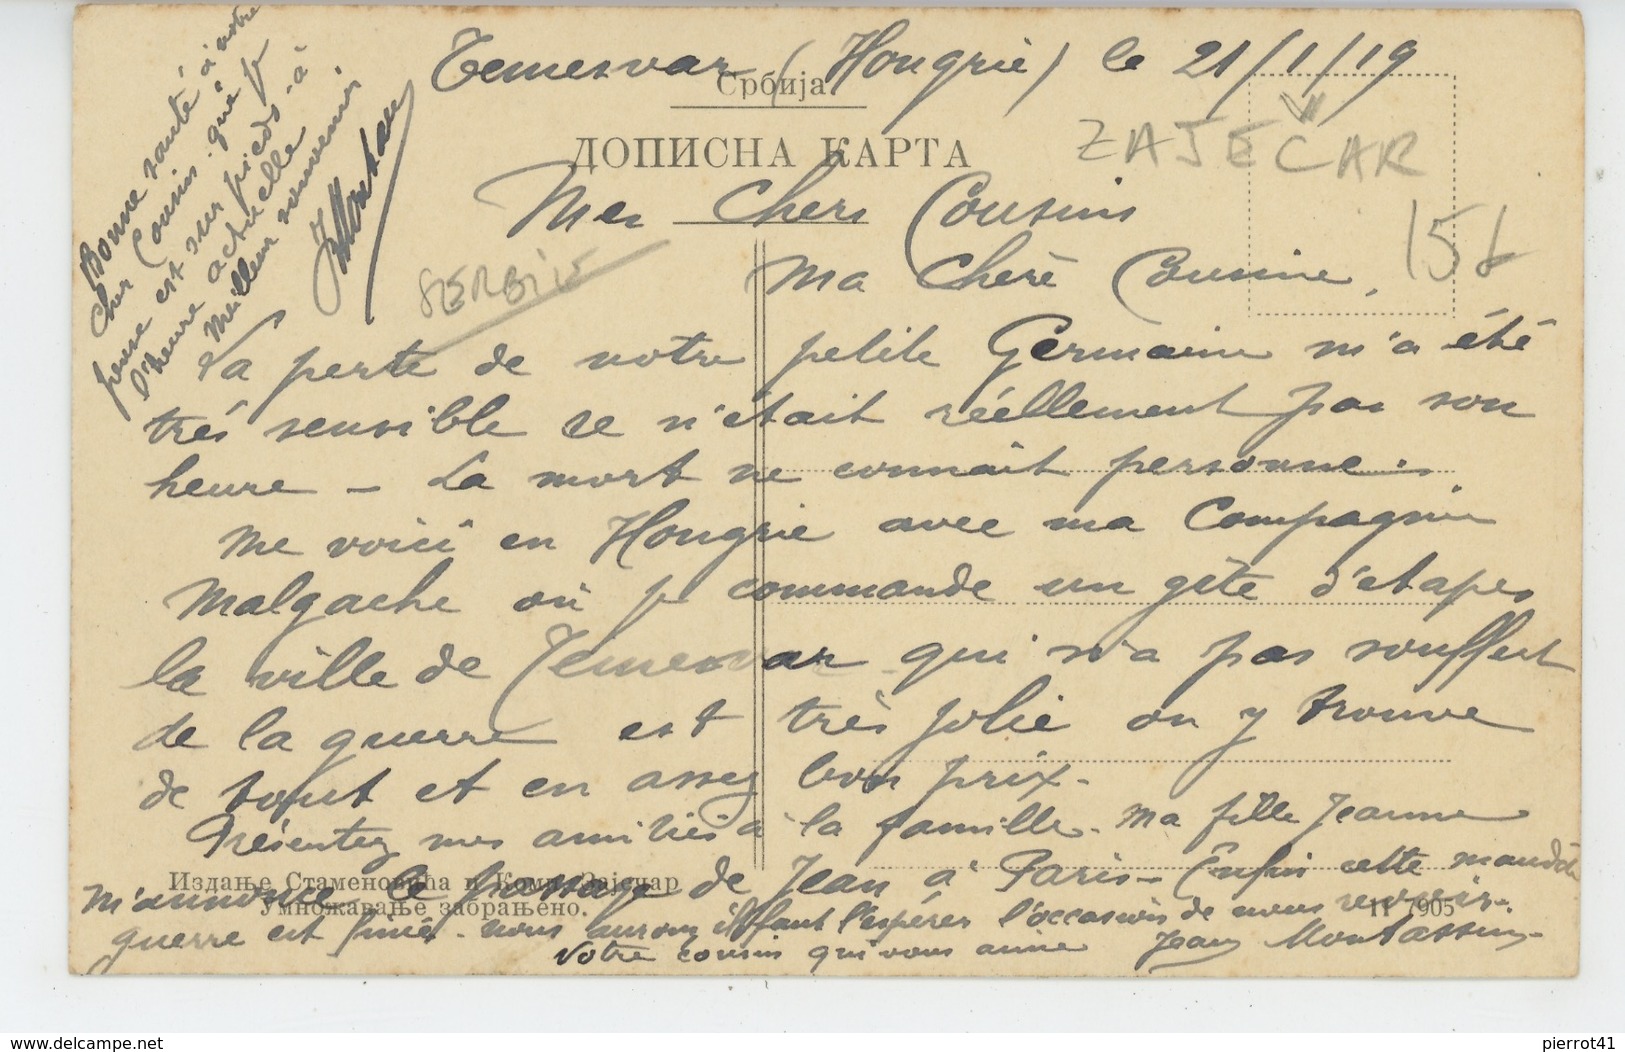 Temesvar (Hongrie) le 21/1/19
Србија
ДОПИСНА КАРТА
ZAJEČAR
15f
SERBIE
Mes Chers Cousins
Ma Chère Cousine,
La perte de votre petite Germaine m'a été
très sensible ce n'était réellement pas son
heure - La mort ne connait personne.
Me voici en Hongrie avec ma Compagnie
Malgache où je commande un gîte d'étapes
la ville de Temesvar qui n'a pas souffert
de la guerre est très jolie on y trouve
de tout et en assez bon prix.
Présentez mes amitiés à la famille. Ma fille Jeanne
m'annonce le passage de Jean à Paris - Enfin cette maudite
guerre est finie. nous aurons il faut l'espérer l'occasion de nous revoir.
Votre cousin qui vous aime Jean
Издање Стаменовића и Комп. Зајечар
Умножавање забрањено.
11 7905
Bonne santé à notre
cher Cousin que je
pense est sur pieds à
l'heure actuelle
Meilleur souvenir
pierrot41
www.delcampe.net